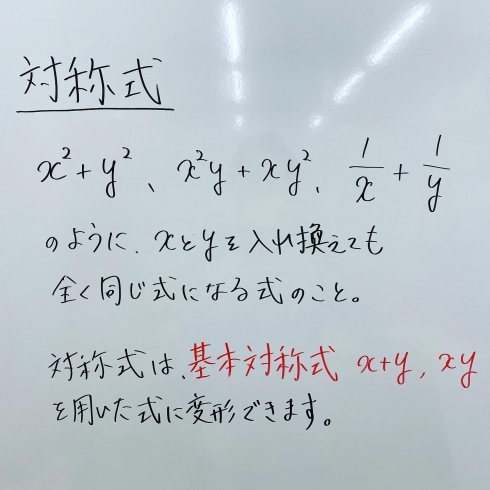 対称式
x²+y²、x²y+xy²、1/x+1/y
のように、xとyを入れ換えても
全く同じ式になる式のこと。
対称式は、基本対称式 x+y, xy
を用いた式に変形できます。